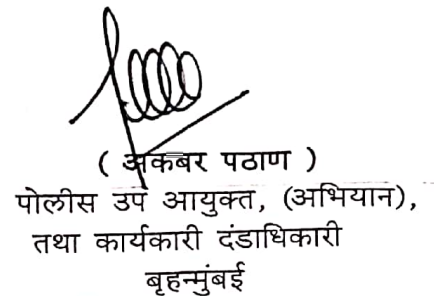 ( अकबर पठाण )
पोलीस उप आयुक्त, (अभियान),
तथा कार्यकारी दंडाधिकारी
बृहन्मुंबई